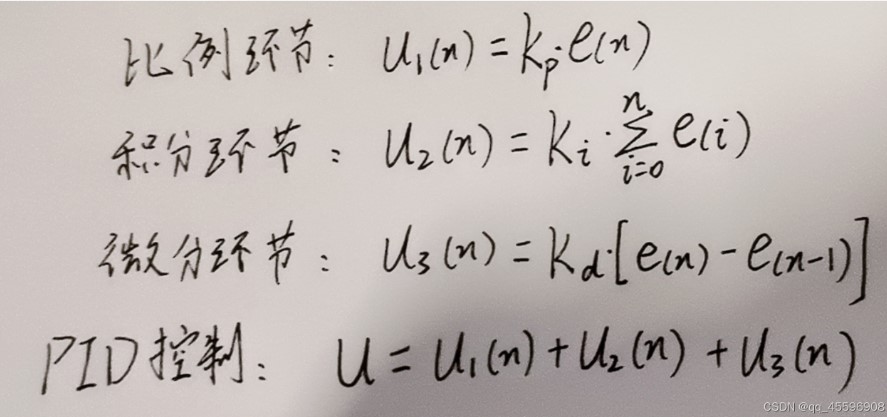 比例环节: u₁(n) = kp·e(n)
积分环节: u₂(n) = Ki·∑ⁿᵢ₌₀ e(i)
微分环节: u₃(n) = Kd·[e(n) - e(n-1)]
PID控制: u = u₁(n) + u₂(n) + u₃(n)
CSDN @qq_45596908